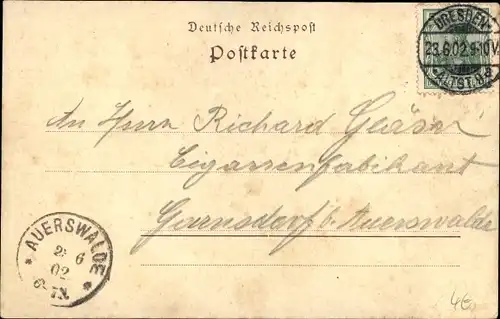 Deutsche Reichspost
Postkarte
DRESDEN
23.6.02.9-10V.
* ALTST. *
An Herrn Richard Gläser
Cigarrenfabrikant
Garnsdorf b. Auerswalde
* AUERSWALDE *
6
02
N.
4€